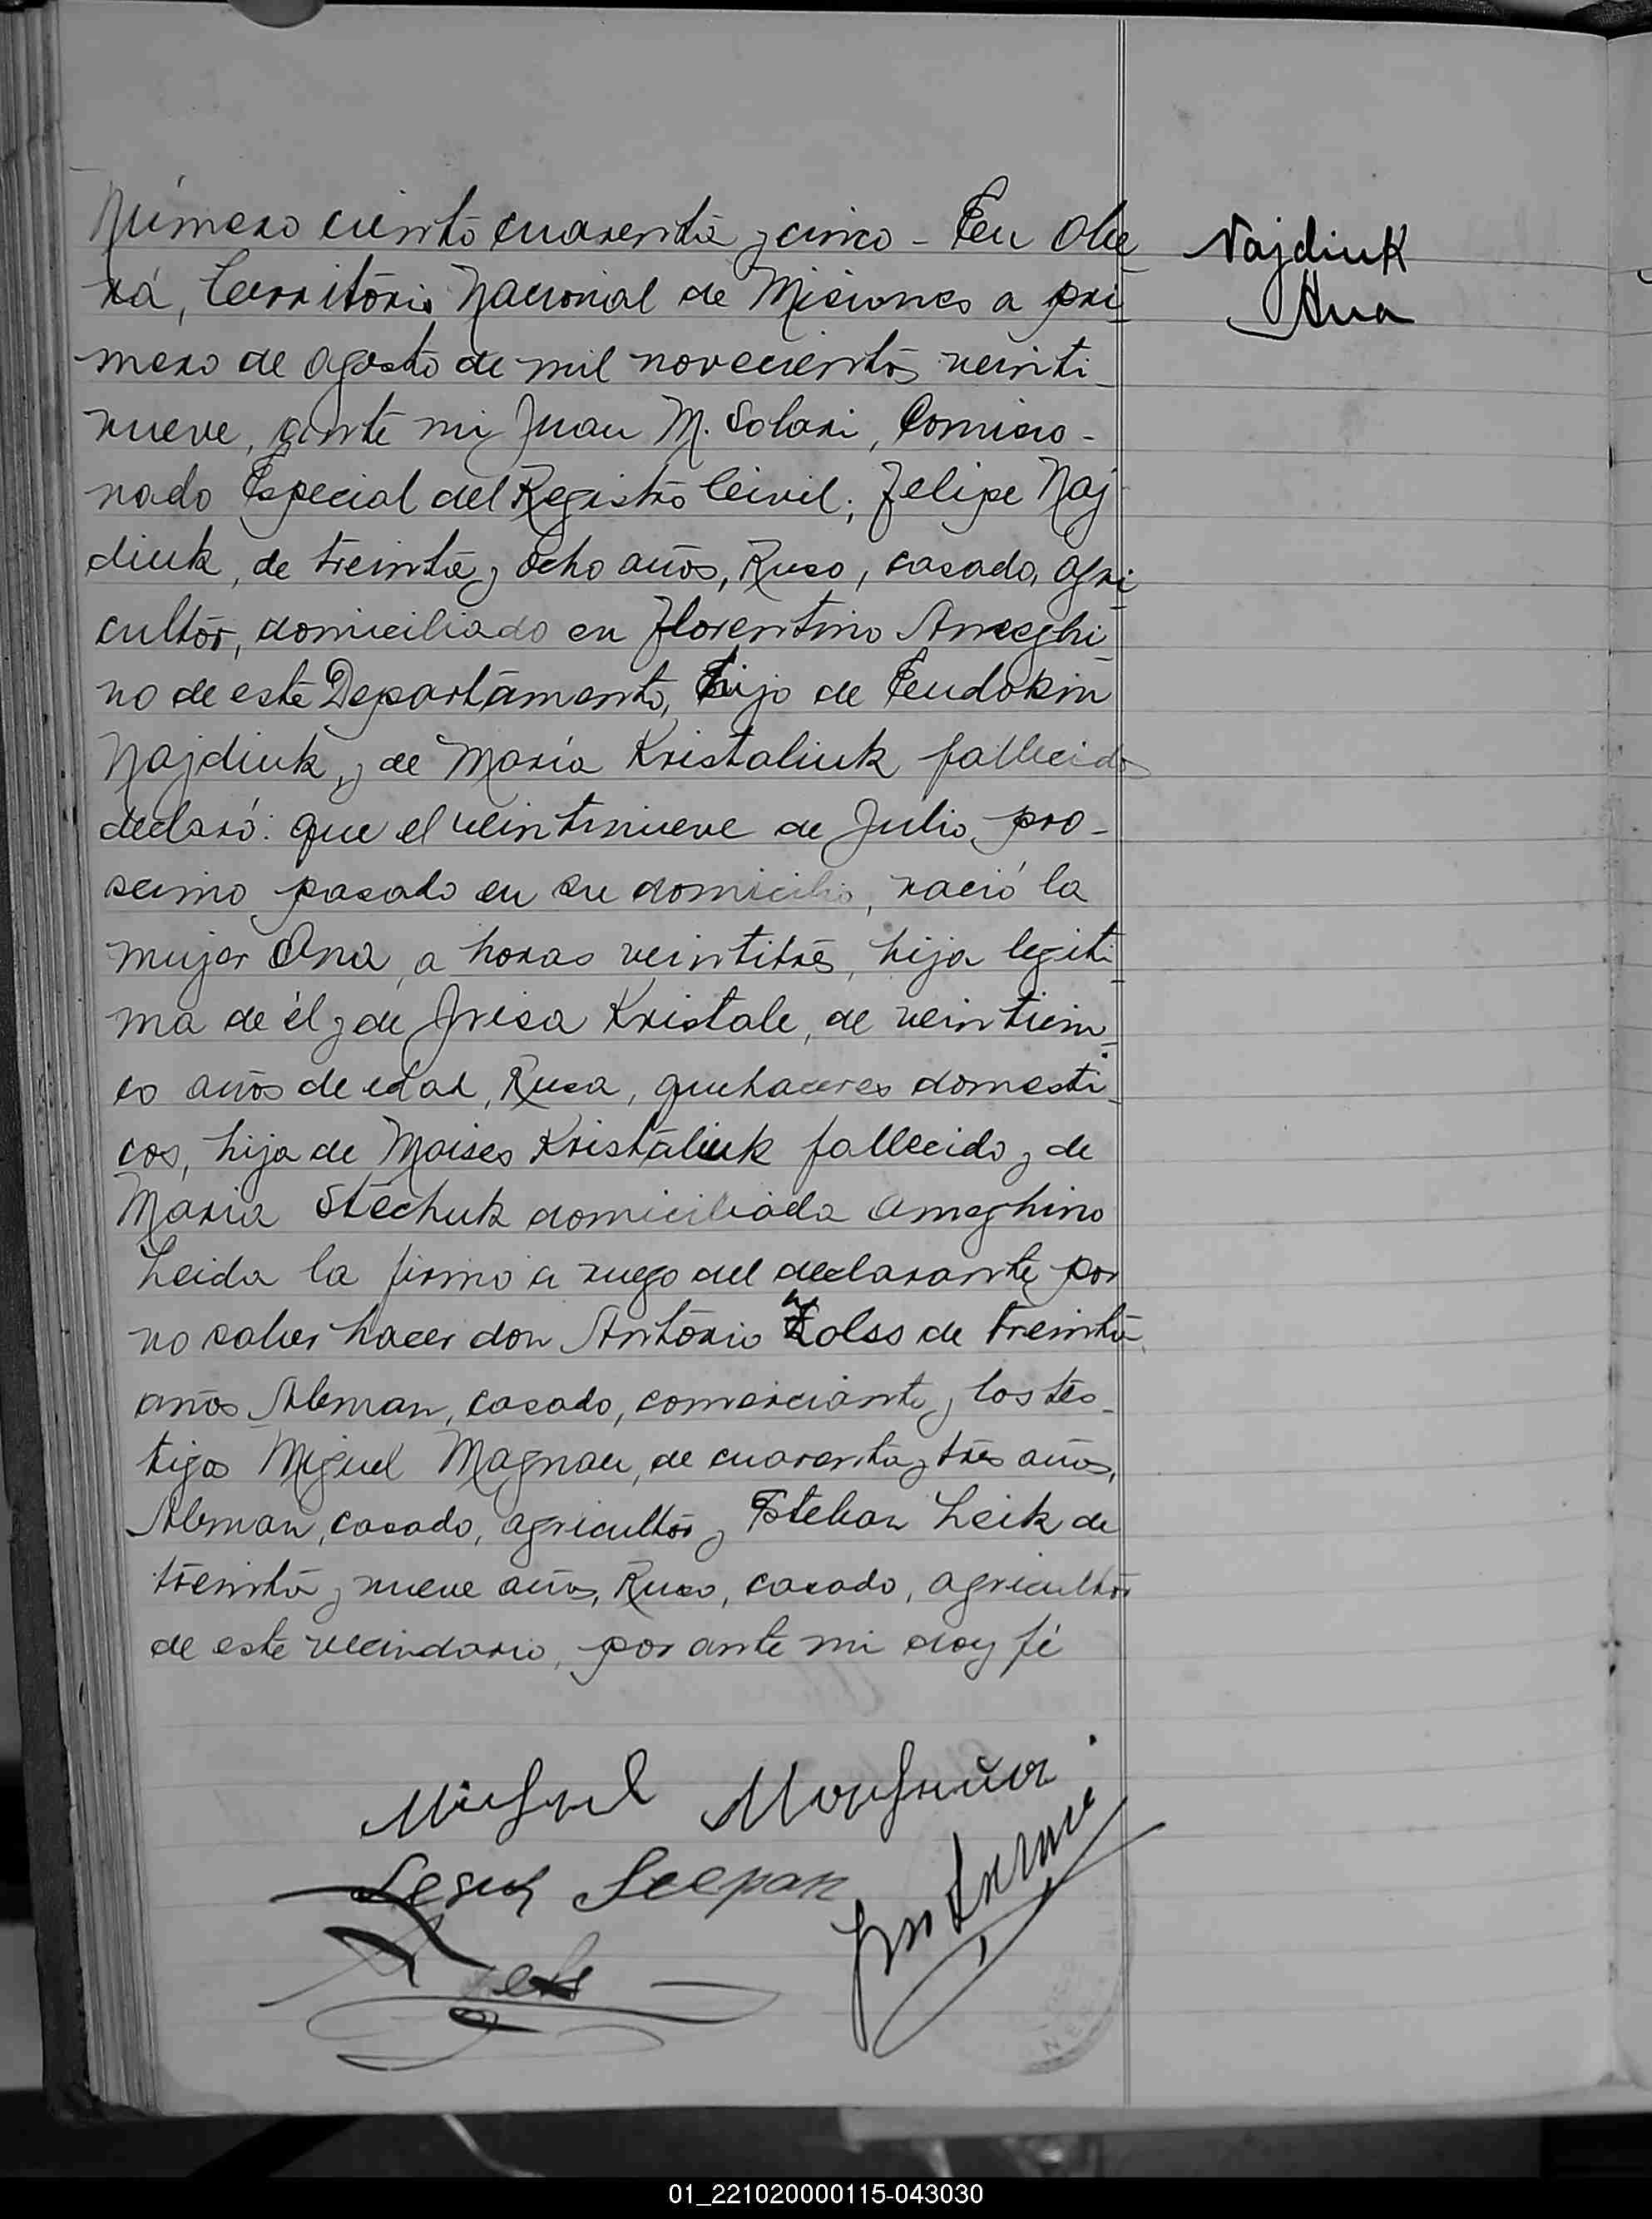 Número ciento cuarenta y cinco - En Obe
Najdiuk
Ana
rá, Territorio Nacional de Misiones a pri
mero de agosto de mil novecientos veinti
nueve, ante mi Juan M. Solari, Comisio-
nado Especial del Registro Civil; Felipe Naj
diuk, de treinta y ocho años, Ruso, casado, agri
cultor, domiciliado en Florentino Ameghi
no de este Departamento, hijo de Eudokin
Najdiuk, y de María Kristaliuk fallecidos
declaró: que el veintinueve de Julio pro-
scimo pasado en su domicilio, nació la
mujer Ana, a horas veintitrés, hija legiti
ma de él y de Irisa Kristale, de veinticin
co años de edad, Rusa, quehaceres domesti
cos, hija de Moises Kristaliuk fallecido y de
Maria Stechuk domiciliada Ameghino
Leida la firmo a ruego del declarante por
no saber hacer don Antonio Zolss de treinta
años Aleman, casado, comerciante y los tes-
tigos Miguel Magnau, de cuarenta y tres años,
Aleman, casado, agricultor y Esteban Leik de
treinta y nueve años, Ruso, casado, agricultor
de este vecindario, por ante mi doy fé
01_221020000115-043030